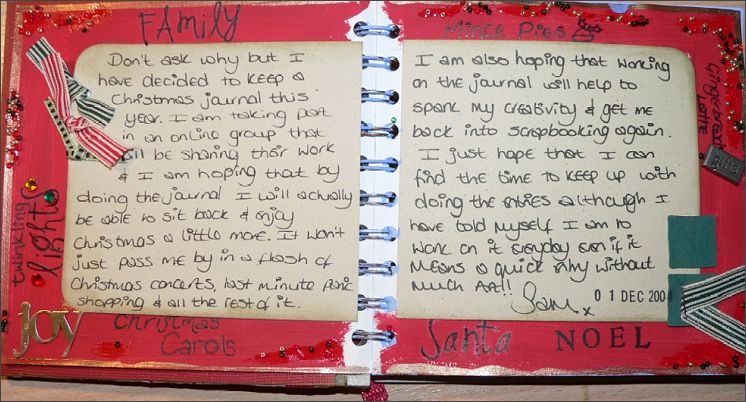 FAMily
Don't ask why but I
have decided to keep a
Christmas journal this
year. I am taking part
in an online group that
will be sharing their work
& I am hoping that by
doing the journal I will actually
be able to sit back & enjoy
Christmas a little more. It won't
just pass me by in a flash of
Christmas concerts, last minute panic
shopping & all the rest of it.
twinkling
lights
joy
Christmas
Carols
Mince Pies
I am also hoping that working
on the journal will help to
spark my creativity & get me
back into scrapbooking again.
I just hope that I can
find the time to keep up with
doing the entries although I
have told myself I am to
work on it everyday even if it
means a quick entry without
much Art!!
Sam x
01 DEC 2004
Gingerbread
Latte
Santa
NOEL